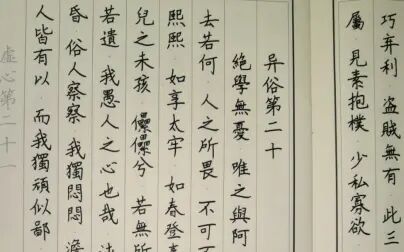 巧弃利 盗賊無有 此三
屬 見素抱樸 少私寡欲
异俗第二十
絕學無憂 唯之與阿
去若何 人之所畏 不可
熙熙 如享太牢 如春登
兒之未孩 儽儽兮 若無所
若遺 我愚人之心也哉
昏 俗人察察 我獨悶悶 澹
人皆有以 而我獨頑似鄙
虛心第二十一